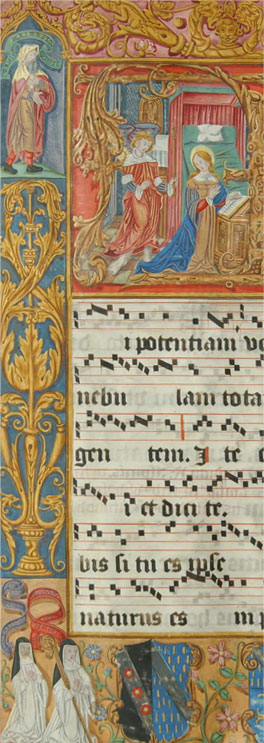 i potentiam vo
nebu lam tota
gen tem. I te o
et dici te.
bis si tu es ipse
naturus es in p